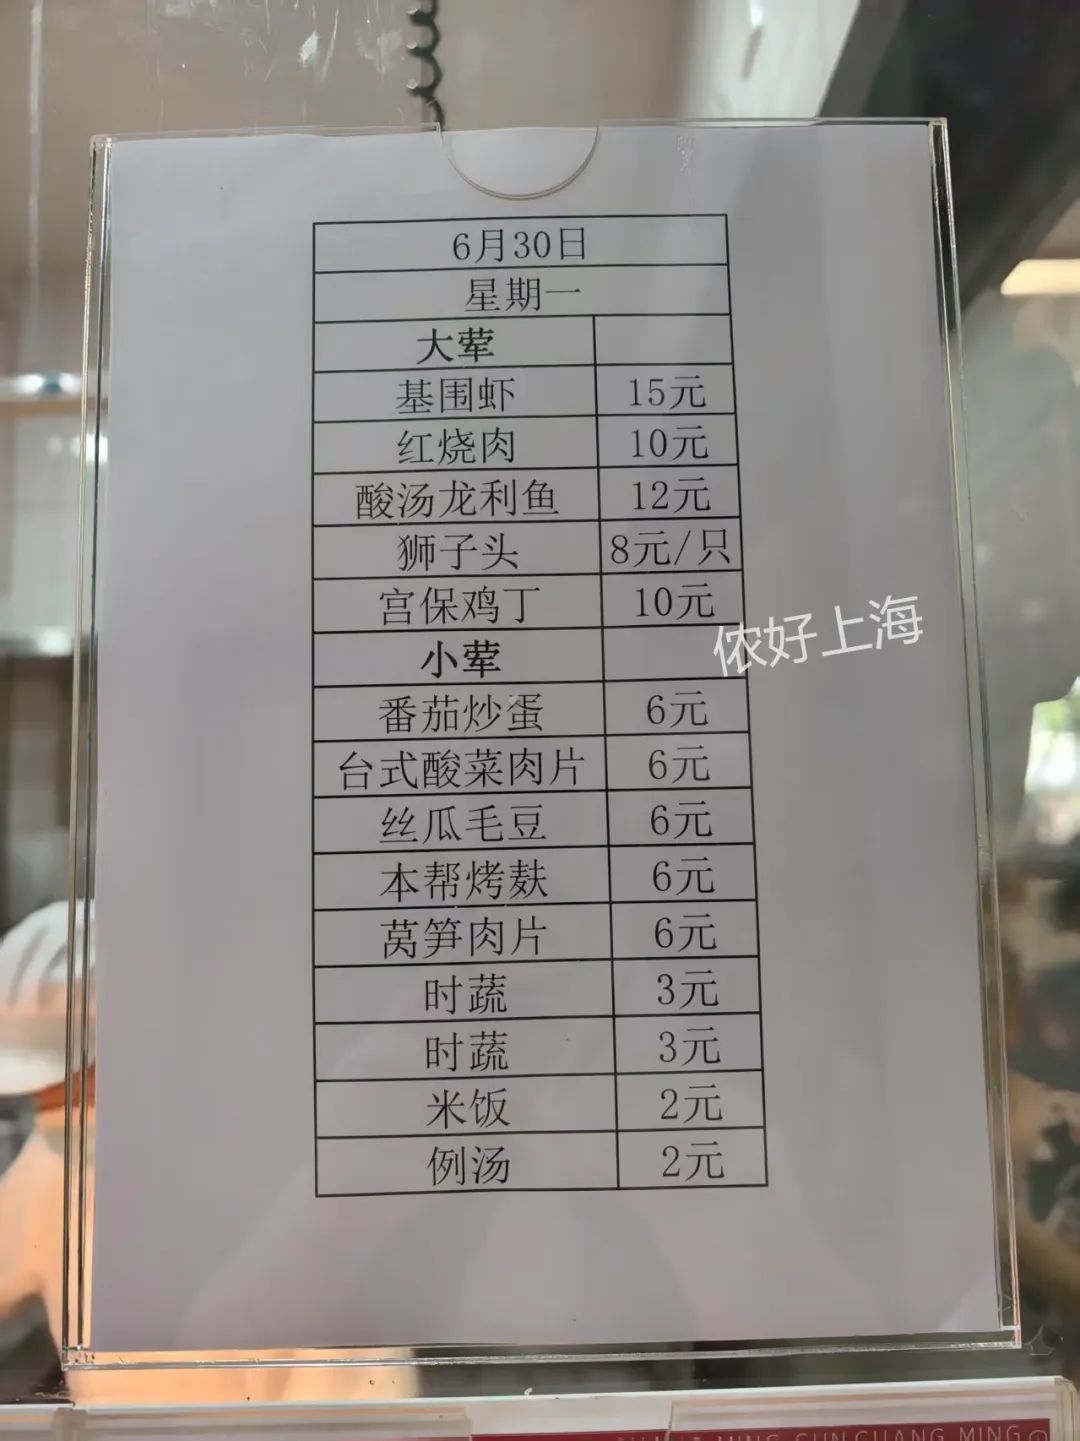 6月30日
星期一
大荤
基围虾 15元
红烧肉 10元
酸汤龙利鱼 12元
狮子头 8元/只
宫保鸡丁 10元
小荤
番茄炒蛋 6元
台式酸菜肉片 6元
丝瓜毛豆 6元
本帮烤麸 6元
莴笋肉片 6元
时蔬 3元
时蔬 3元
米饭 2元
例汤 2元
侬好上海
MING